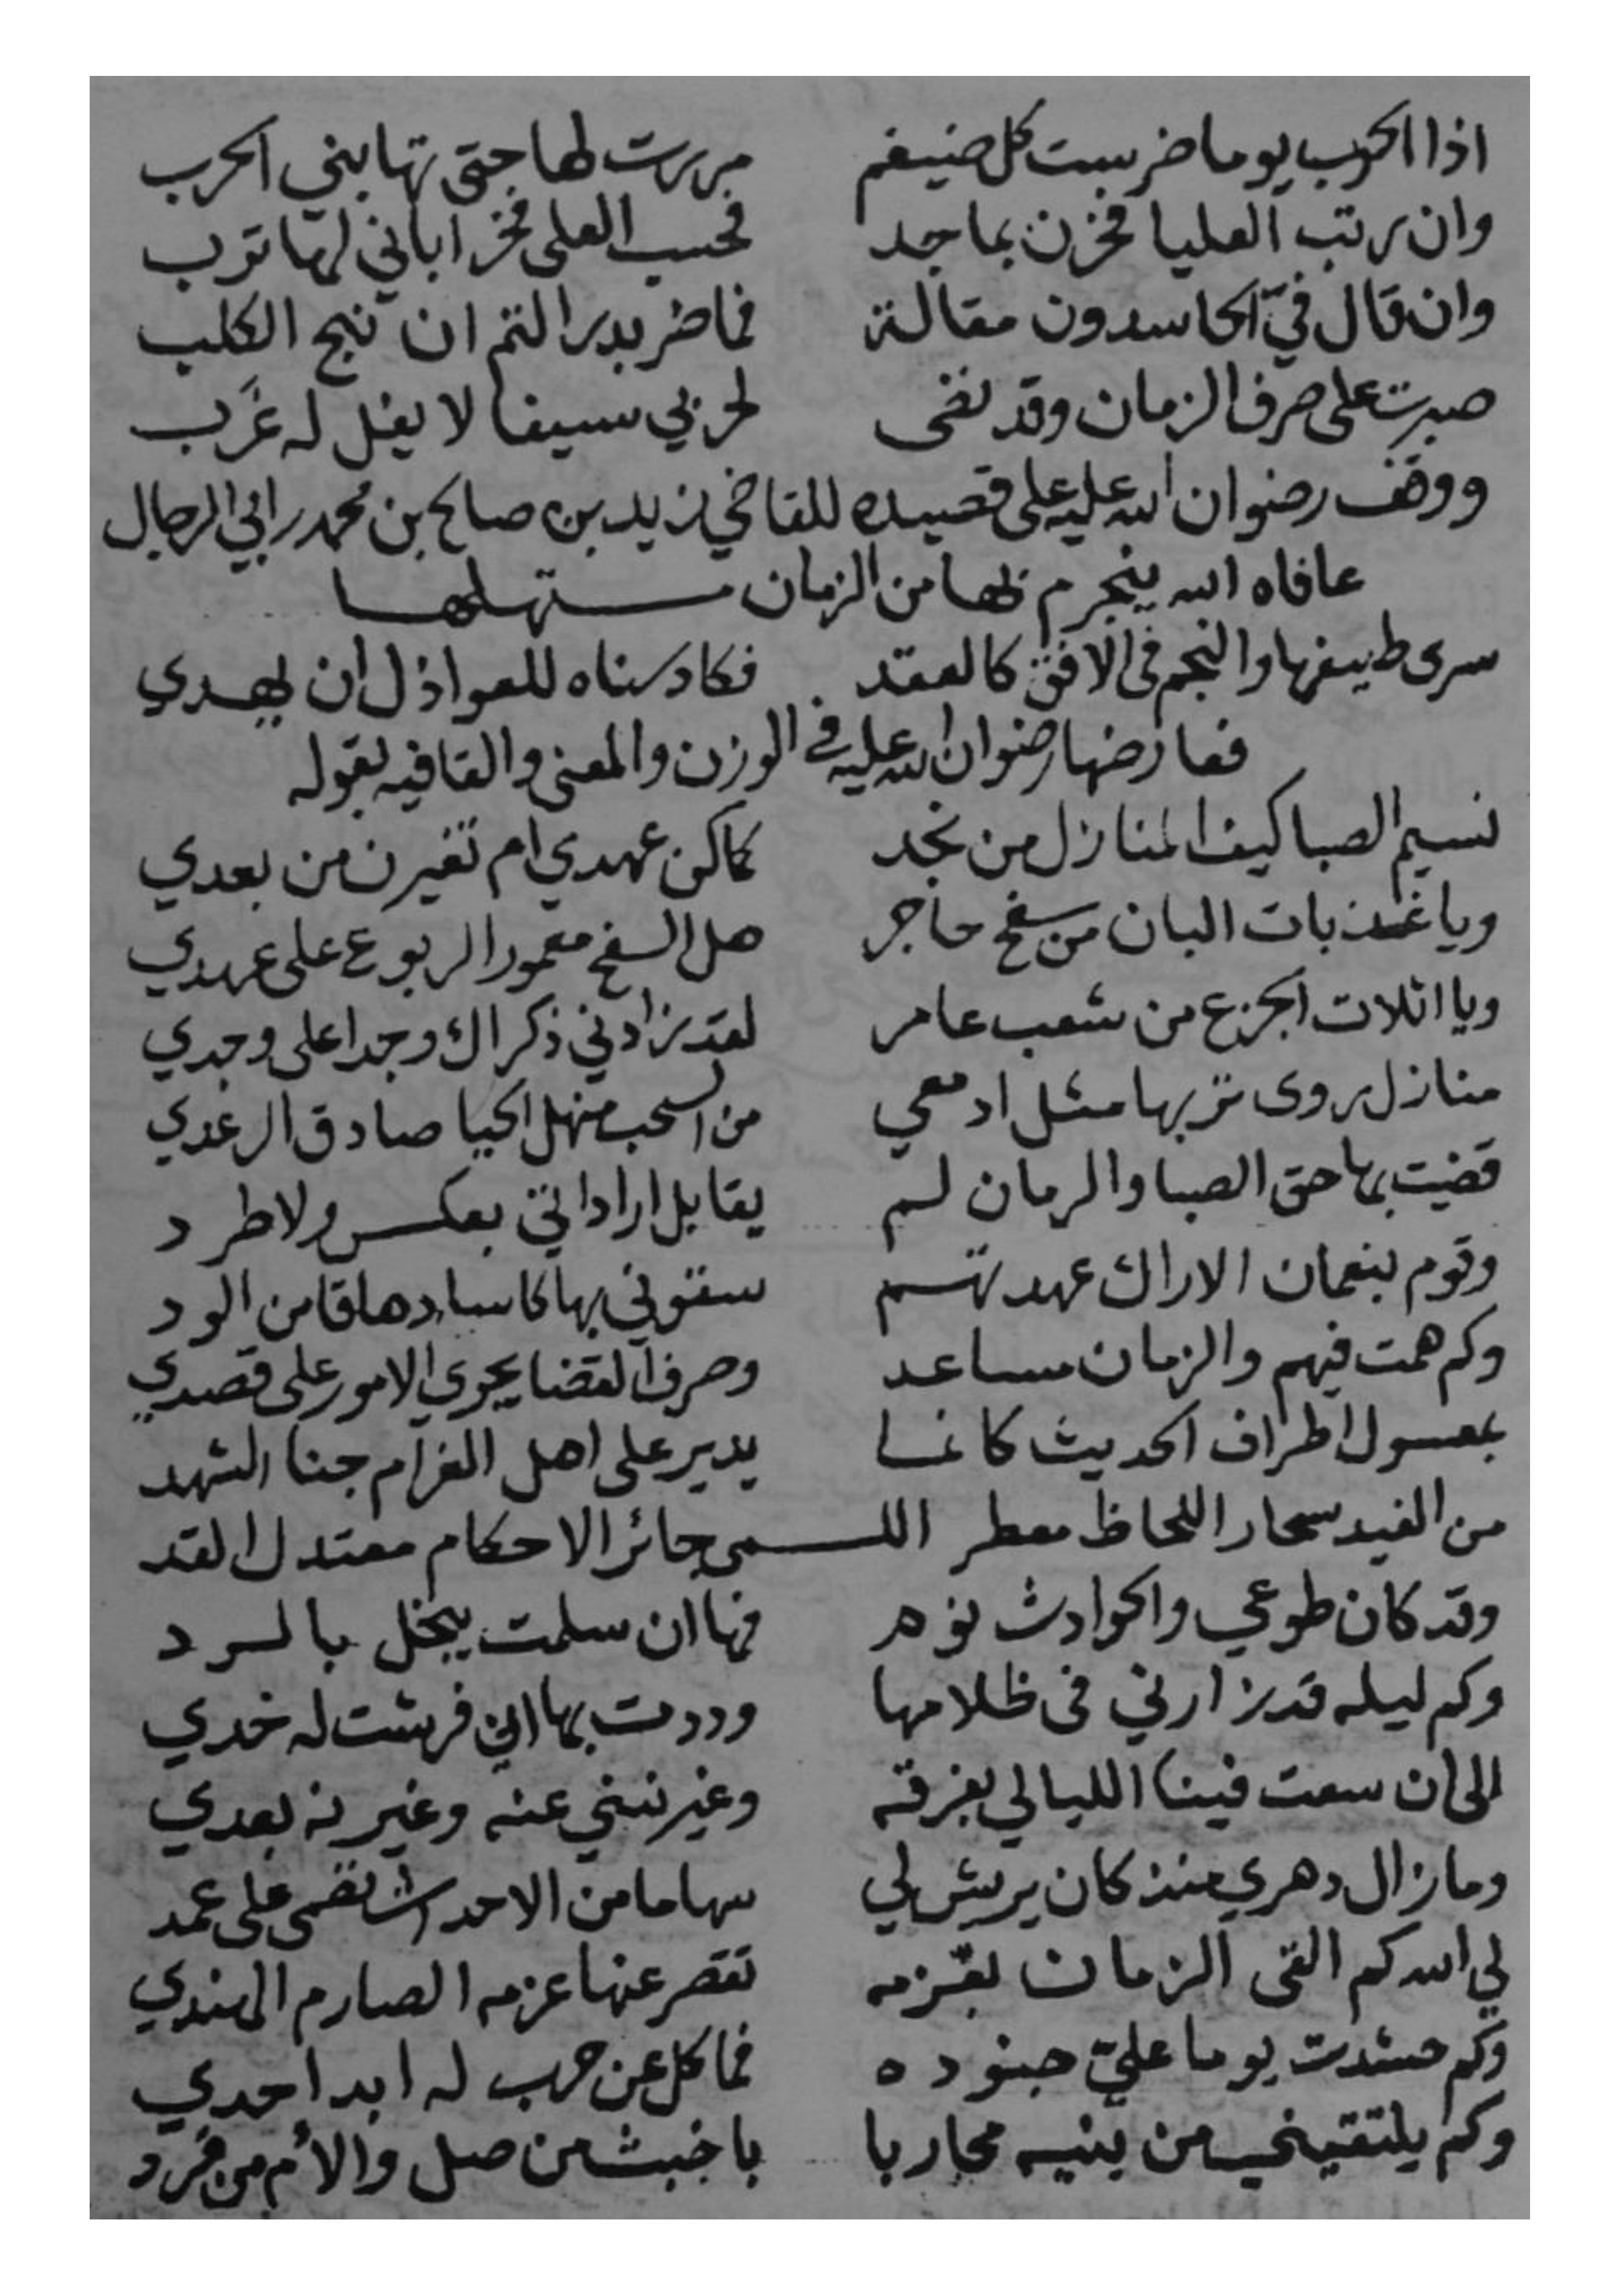 اذا الحرب يوما ضرست كل ضيغم مررت لها حتى تهابني الحرب
وان رتب العليا فخرن بماجد فحسب العلى فخرا باني لها ترب
وان قال فيّ الحاسدون مقالة فما ضر بدر التم ان نبح الكلب
صبرت على صرف الزمان وقد نضى لحربي سيفا لا يفل له غَرب
ووقف رضوان الله عليه على قصيده للقاضي زيد بن صالح بن محمد ابي الرجال
عافاه الله من الزمان مستهلها
سرى طيفها والنجم في الافق كالعقد فكاد سناه للعواذل ان يهدي
فعارضها رضوان الله عليه في الوزن والمعنى والقافيه بقوله
نسيم الصبا كيف المنازل من نجد كما كن عهدي ام تغيرن من بعدي
ويا عذبات البان من سفح حاجر هل السفح معمور الربوع على عهدي
ويا اثلات الجزع من شعب عامر لقد زادني ذكراك وجدا على وجدي
منازل روى تربها مثل ادمعي من السحب منهل الحيا صادق الرعدي
قضيت بها حق الصبا والزمان لم يقابل اراداتي بعكس ولا طرد
وقوم بنعمان الاراك عهدتهم سقوني بها كاسا دهاقا من الود
وكم همت فيهم والزمان مساعد وصرف القضا يجري الامور على قصدي
بمعسول اطراف الحديث كانما يدير على اهل الغرام جنا الشهد
من الغيد سحار اللحاظ معطر اللمى جائر الاحكام معتدل القد
وقد كان طوعي والحوادث نوم فها ان سلمت يبخل بالرد
وكم ليله قد زارني في ظلامها وددت بها اني فرشت له خدي
الى ان سعت فينا الليالي بفرقه وغيرنني عنه وغيرنه بعدي
وما زال دهري منذ كان يريش لي سهاما من الاحداث تصمى على عمد
لي الله كم القى الزمان بعزمه تقصر عنها عزمه الصارم الهندي
وكم حشدت يوما عليّ جنوده فما كل عن حرب له ابدا حدي
وكم يلتقيني من بنيه محاربا باخبث من صل والأم من قرد